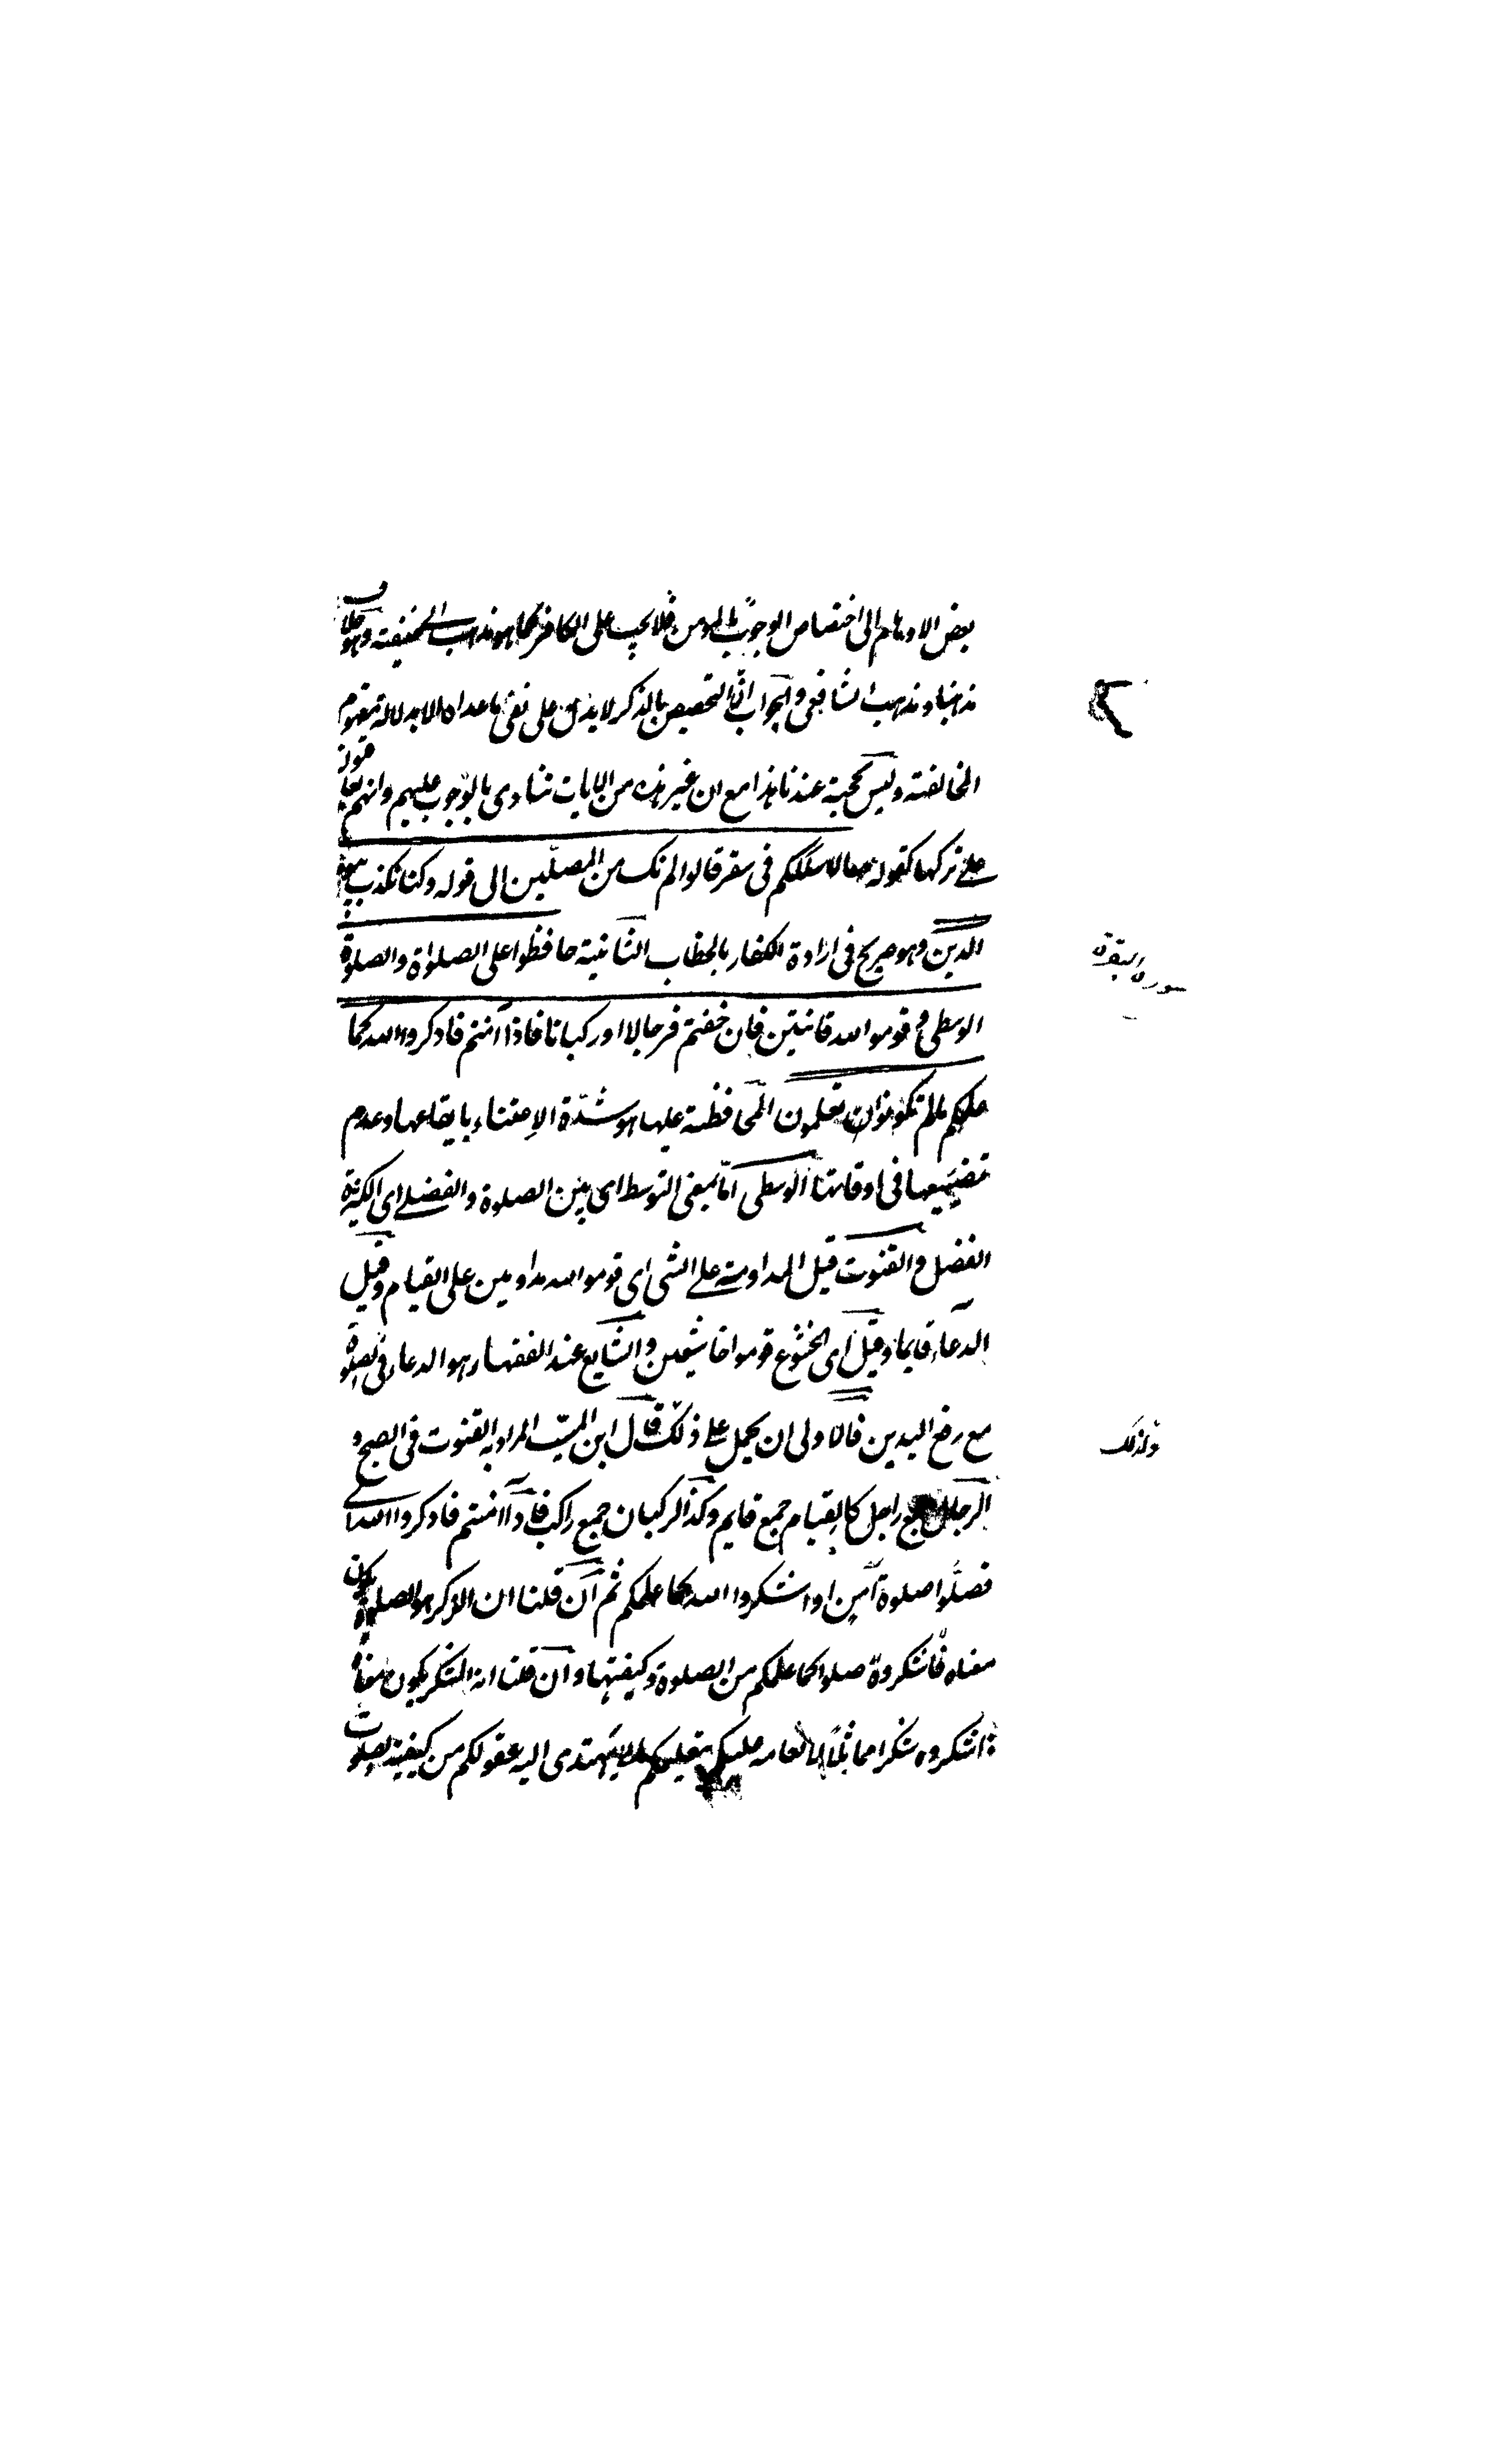 بعض الاوهام الى اختصاص الوجوب بالمومن فلا يجب على الكافر كما هو مذهب الحنيفة وهو خلاف
مذهبنا ومذهب الشافعى والجواب ان التخصيص بالذكر لا يدل على نفى ما عداه الا بدلالة مفهوم
المخالفة وليس بحجة عندنا هذا مع ان غير هذه من الايات تنادى بالوجوب عليهم وانهم
على تركها كقوله ما سلككم فى سقر قالوا لم نك من المصلين الى قوله وكنا نكذب بيوم
الدين وهو صريح فى ارادة الكفار بالخطاب الثانية حافظوا على الصلواة والصلوة
الوسطى وقوموا لله قانتين فان خفتم فرجالا او ركبانا فاذا آمنتم فاذكروا الله كما
علمكم ما لم تكونوا تعلمون المحافظة عليها هو شدة الاعتناء بايقاعها وعدم
تضييعها فى اوقاتها الوسطى اما بمعنى التوسط اى بين الصلوة والفضلى اى
الفضل والقنوت قيل المداومة على الشى اى قوموا لله مداومين على القيام وقيل
الدعاء قايما وقيل اى الخشوع قوموا خاشعين والشايع عند الفقهاء هو الدعاء فى الصلوة
مع رفع اليدين فالاولى ان يحمل على ذلك قال ابن المسيب المراد به القنوت فى الصبح و
الرجال جمع راجل كالقيام جمع قايم وكذا الركبان جمع راكب فاذا آمنتم فاذكروا الله اى
فصلوا صلوة آمين او اشكروا الله كما علمكم ثم ان قلنا ان الذكر هو الصلوة يكون
معناه فاشكروه صلوا كما علمكم من الصلوة وكيفيتها وان قلنا انه الشكر يكون معناه
اشكروه شكرا مماثلا لانعامه عليكم بتعليمكم ما لا يهتدى اليه عقولكم من كيفية الصلوات
سورة البقرة
ولذلك